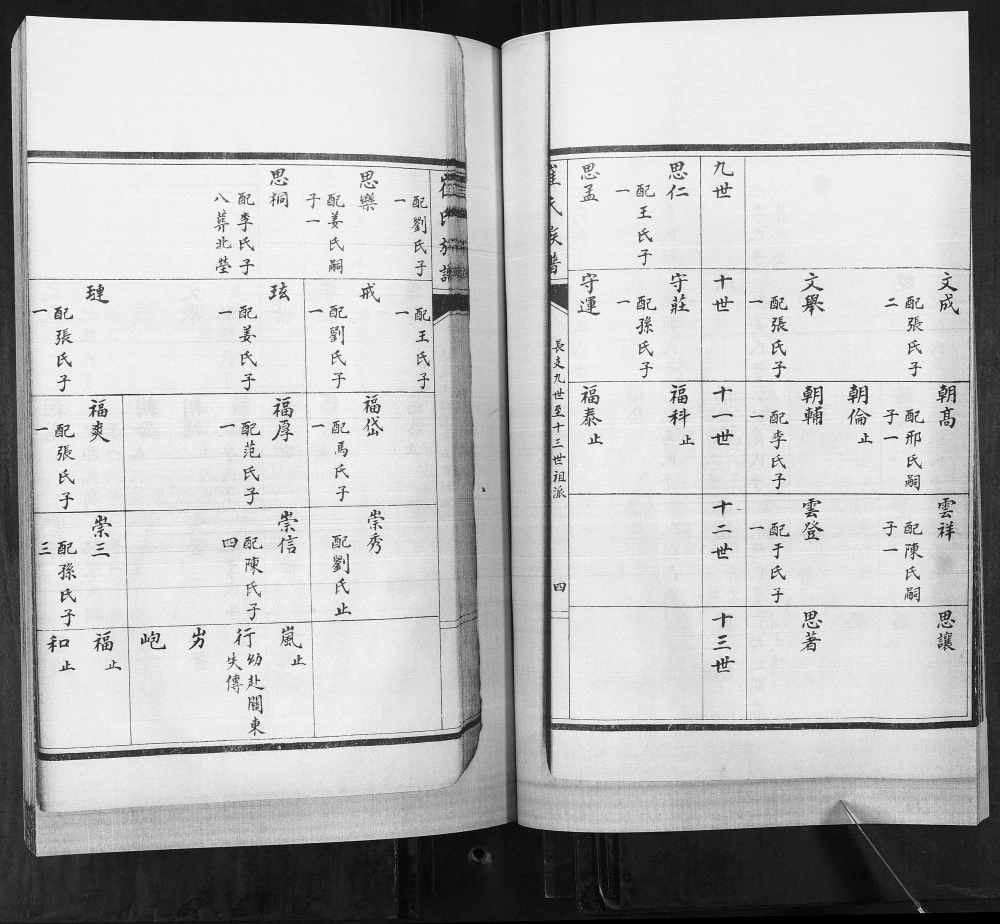 文成
配張氏子
二
文舉
配張氏子
一
朝髙
配邢氏嗣
子一
朝倫止
朝輔
配李氏子
一
雲祥
配陳氏嗣
子一
雲登
配于氏子
一
思讓
思著
九世
十世
十一世
十二世
十三世
思仁
配王氏子
一
思孟
守莊
配孫氏子
一
守運
福科止
福泰止
崔氏族譜
長支九世至十三世祖派
四
崔氏族譜
配劉氏子
一
思樂
配姜氏嗣
子一
思桐
配李氏子
八葬北塋
配王氏子
一
戒
配劉氏子
一
玹
配姜氏子
一
璉
配張氏子
一
福岱
配馬氏子
一
福厚
配范氏子
一
福爽
配張氏子
一
崇秀
配劉氏止
崇信
配陳氏子
四
崇三
配孫氏子
三
嵐止
行幼赴關東
失傳
岃
岮
福止
和止